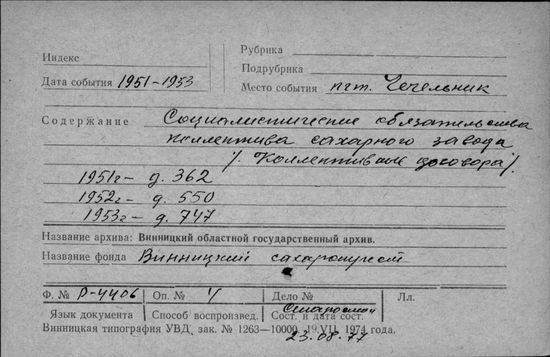 Индекс
Рубрика
Дата события 1951-1953
Подрубрика
Место события пгт. Чечельник
Содержание Социалистические обязательства
коллектива сахарного завода
/. Коллективные договора/.
1951г- д. 362
1952г- д. 550
1953г- д. 747
Название архива: Винницкий областной государственный архив.
Название фонда Винницкий
Ф. № Р-4406 Оп. № 4 Дело № Лл.
Язык документа Способ воспроизвед. Сост. и дата сост.
Винницкая типография УВД, зак. № 1263—10000. 19.VII. 1974 года.
23.08.77